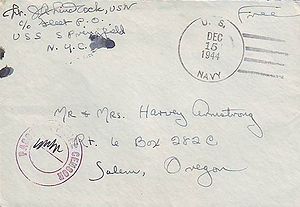 USN
c/o Fleet P.O.
U S S Springfield
N.Y.C.
U. S.
DEC
15
1944
NAVY
Free
Mr & Mrs. Harvey Armstrong
Rt. 6 Box 282C
Salem, Oregon
PASSED
CENSOR